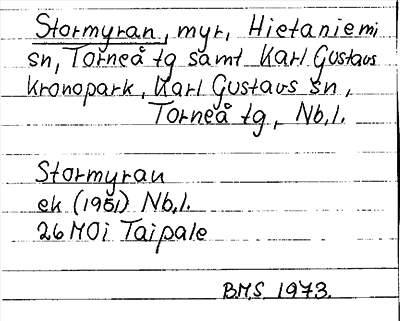 Stormyran, myr, Hietaniemi
sn, Torneå tg samt Karl Gustavs
kronopark, Karl Gustavs sn,
Torneå tg, Nb,l.
Stormyran
ek (1961) Nb,l.
26 M0i Taipale
B.M.S. 1973.